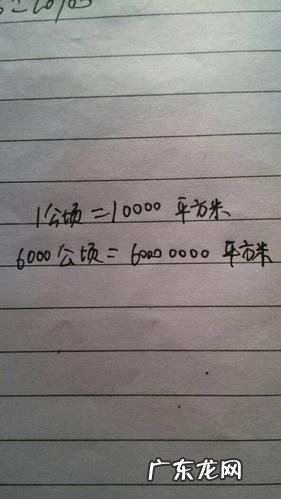 1公顷=10000 平方米
6000公顷=60000000 平方米
广东龙网